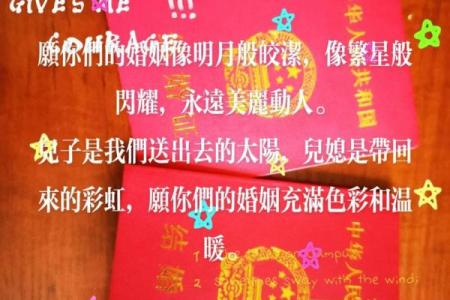 GIVES ME !!!
COURAGE
願你們的婚姻像明月般皎潔，像繁星般
閃耀，永遠美麗動人。
兒子是我們送出去的太陽，兒媳是帶回
來的彩虹，願你們的婚姻充滿色彩和溫
暖。
中华人民共和国
结婚证
中华人民共和国
结婚
sway with the wind